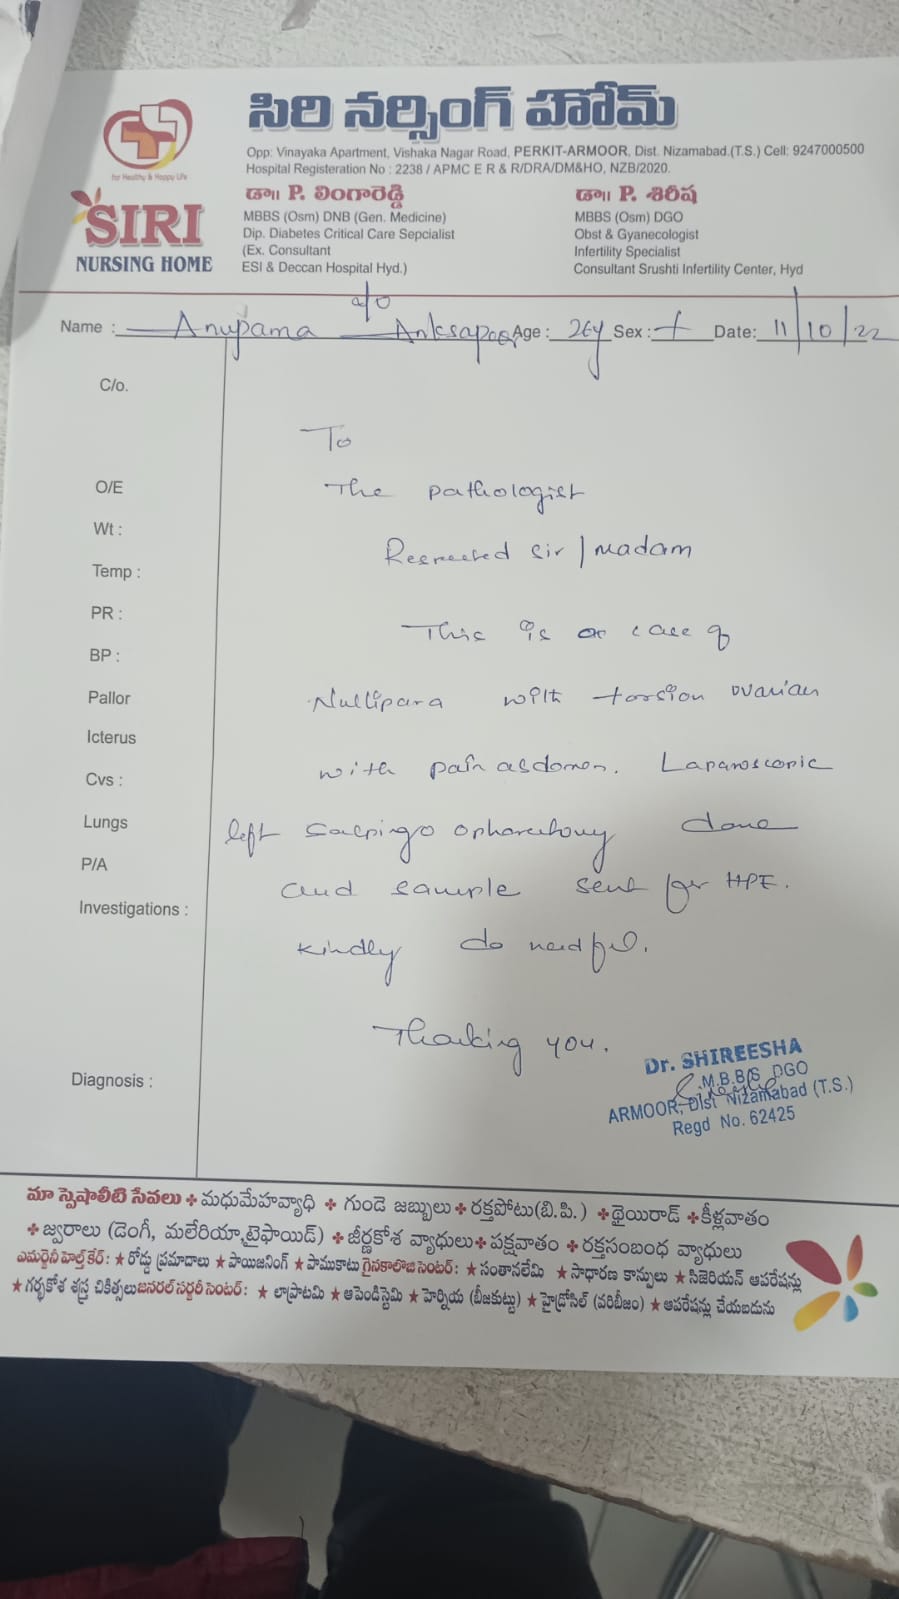 సిరి నర్సింగ్ హోమ్
for Healthy & Happy Life
SIRI
NURSING HOME
Opp: Vinayaka Apartment, Vishaka Nagar Road, PERKIT-ARMOOR, Dist. Nizamabad.(T.S.) Cell: 9247000500
Hospital Registeration No : 2238 / APMC E R & R/DRA/DM&HO, NZB/2020.
డా॥ P. లింగారెడ్డి
MBBS (Osm) DNB (Gen. Medicine)
Dip. Diabetes Critical Care Sepcialist
(Ex. Consultant
ESI & Deccan Hospital Hyd.)
డా॥ P. శిరీష
MBBS (Osm) DGO
Obst & Gyanecologist
Infertility Specialist
Consultant Srushti Infertility Center, Hyd
Name : Anupama Anksapoor Age : 26y Sex : f Date: 11/10/22
C/o.
O/E
Wt :
Temp :
PR :
BP :
Pallor
Icterus
Cvs :
Lungs
P/A
Investigations :
Diagnosis :
To
The pathologist
Respected sir / madam
This is a case of
Nullipara with torsion ovarian
with pain abdomen. Laparoscopic
left salpingo ophorectomy done
and sample sent for HPE.
kindly do needful.
Thanking you.
Dr. SHIREESHA
M.B.B.S DGO
ARMOOR, Dist Nizamabad (T.S.)
Regd No. 62425
మా స్పెషాలిటి సేవలు ✤ మధుమేహవ్యాధి ✤ గుండె జబ్బులు ✤ రక్తపోటు(బి.పి.) ✤ థైయిరాడ్ ✤ కీళ్లవాతం
✤ జ్వరాలు (డెంగీ, మలేరియా,టైఫాయిడ్) ✤ జీర్ణకోశ వ్యాధులు ✤ పక్షవాతం ✤ రక్తసంబంధ వ్యాధులు
ఎమర్జెన్సీ హెల్త్ కేర్ : ★ రోడ్డు ప్రమాదాలు ★ పాయిజనింగ్ ★ పాముకాటు గైనకాలొజి సెంటర్ : ★ సంతానలేమి ★ సాధారణ కాన్పులు ★ సిజెరియన్ ఆపరేషన్లు
★ గర్భకోశ శస్త్ర చికిత్సలు జనరల్ సర్జరీ సెంటర్ : ★ లాప్రాటమి ★ అపెండిస్టెమి ★ హెర్నియ (బీజకుట్టు) ★ హైడ్రోసిల్ (వరిబీజం) ★ ఆపరేషన్లు చేయబడును